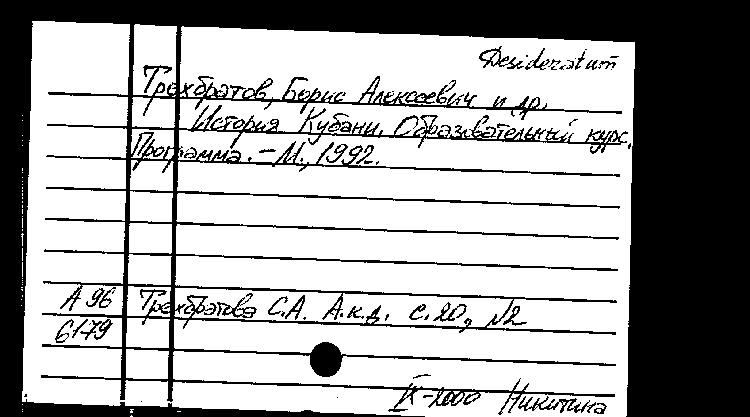 Desideratum
Трехбратов, Борис Алексеевич и др.
История Кубани. Образовательный курс.
Программа. – М., 1992.
А 96 Трехбратова С.А. А.к.д. с.20, №2
6179
IX-2000 Никитина